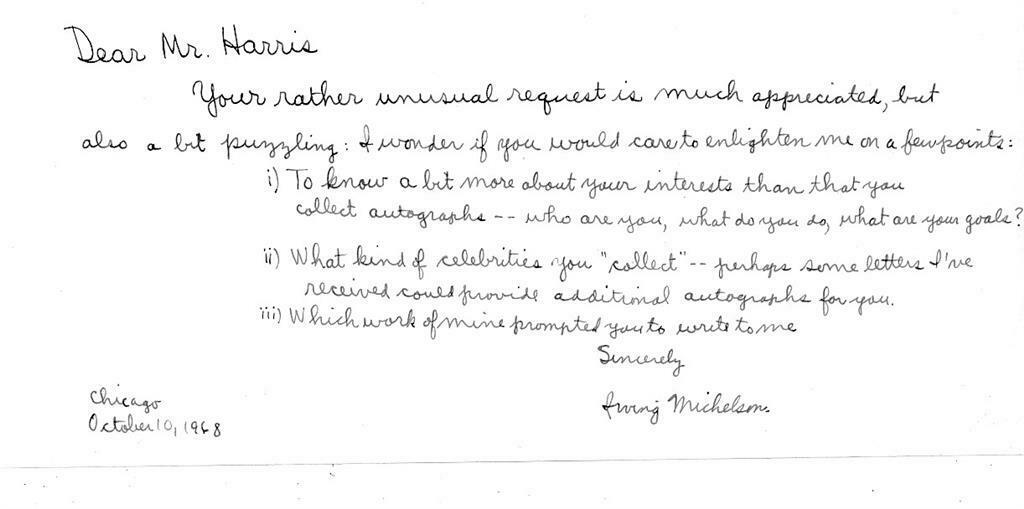 Dear Mr. Harris
Your rather unusual request is much appreciated, but
also a bit puzzling: I wonder if you would care to enlighten me on a few points:
i) To know a bit more about your interests than that you
collect autographs -- who are you, what do you do, what are your goals?
ii) What kind of celebrities you "collect" -- perhaps some letters I've
received could provide additional autographs for you.
iii) Which work of mine prompted you to write to me
Sincerely
Irving Michelson.
Chicago
October 10, 1968